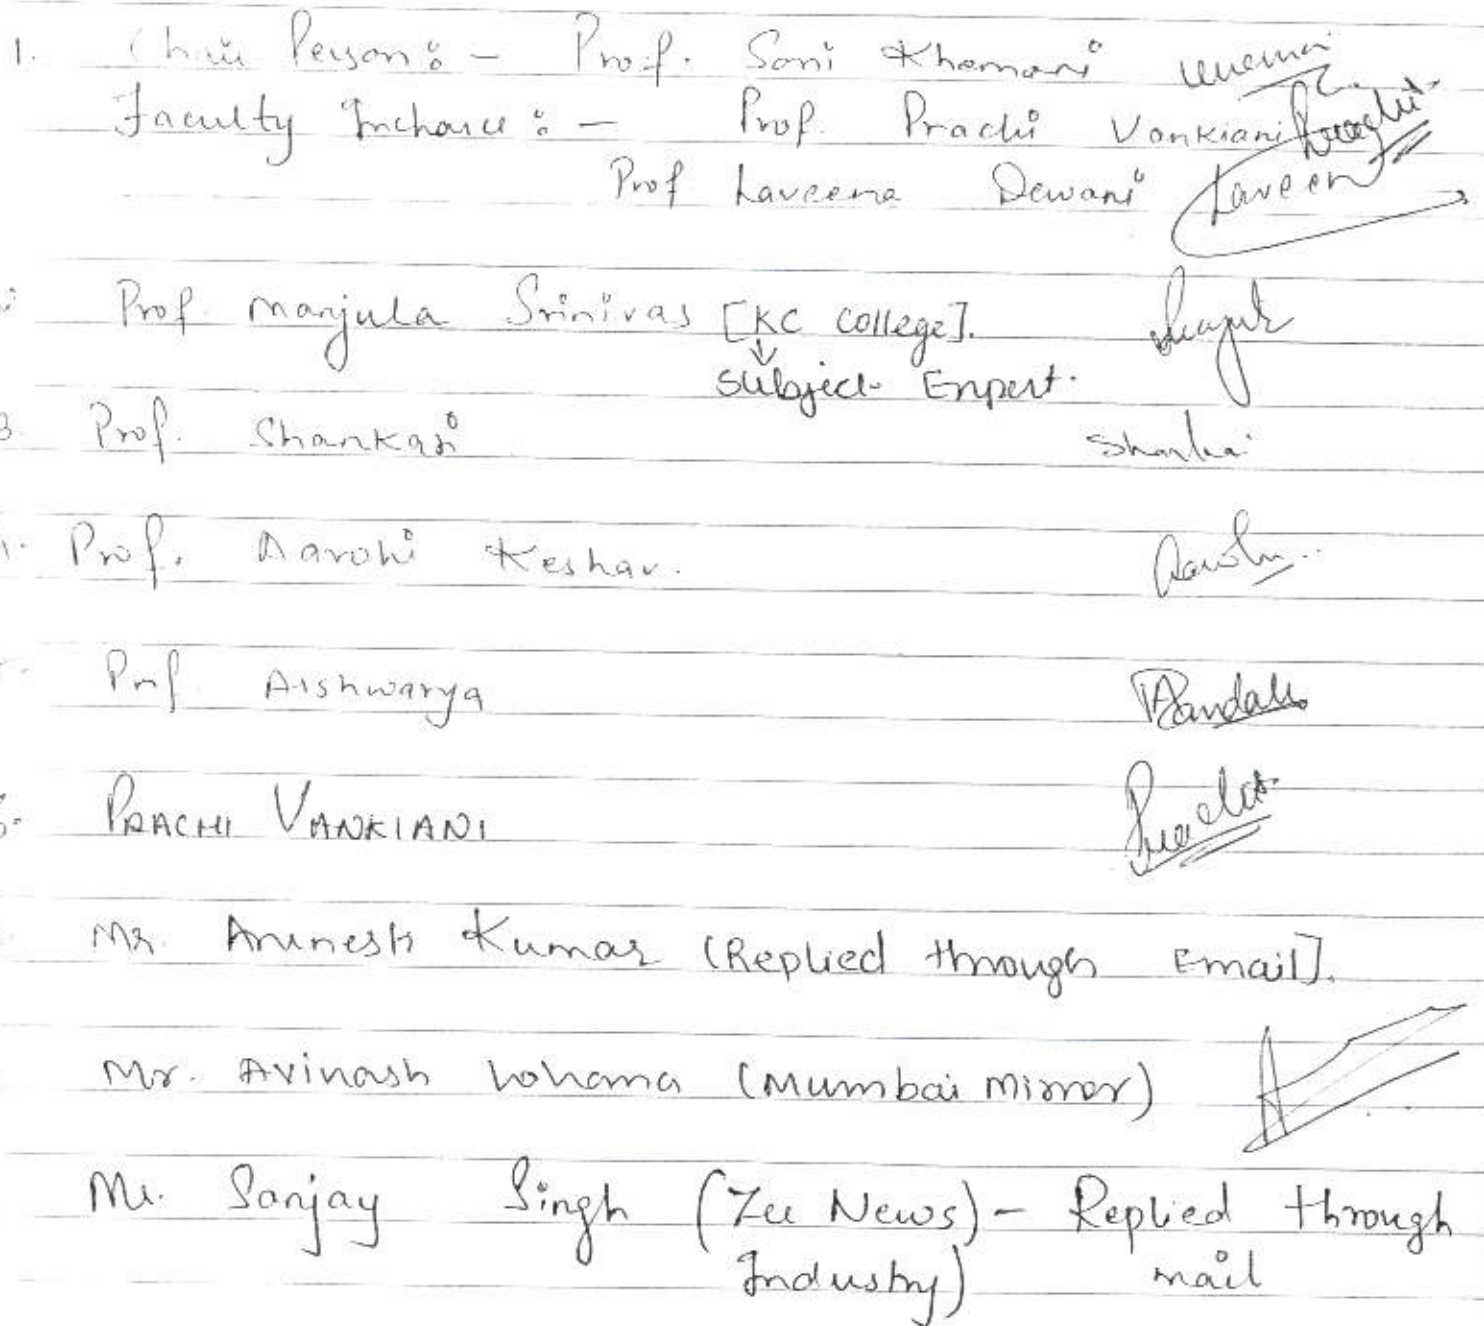 1. Chair Person : - Prof. Soni Khemani
Faculty Incharge : - Prof. Prachi Vankiani Prachi
Prof Laveena Dewani Laveen
Prof Manjula Srinivas [KC College].
Subject Expert.
3 Prof. Shankari
Prof. Aarohi Keshav.
Prof Aishwarya
PRACHI VANKIANI
Mr. Arunesh Kumar (Replied through Email].
Mr. Avinash Lohana (Mumbai Mirror)
Mr. Sanjay Singh (Zee News) - Replied through
Industry) mail